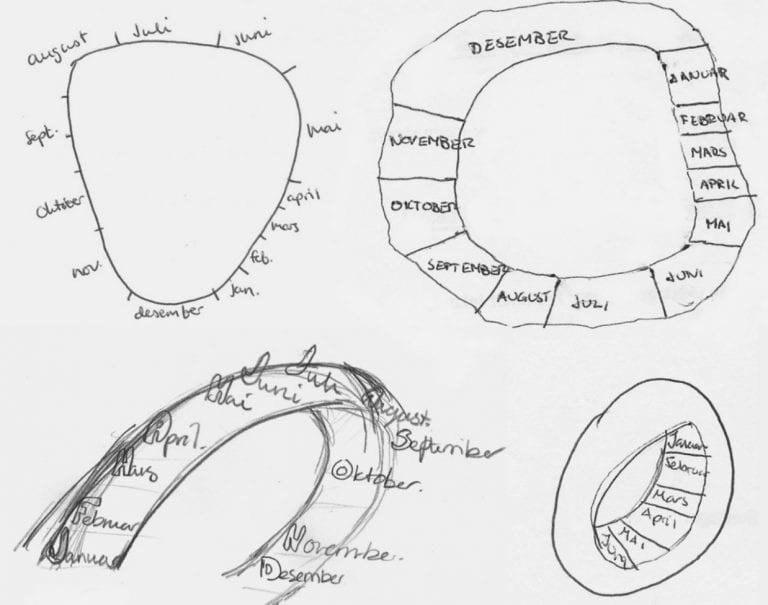 Juli
juni
august
mai
sept.
april
oktober
mars
feb.
nov.
jan.
desember
DESEMBER
JANUAR
FEBRUAR
MARS
APRIL
MAI
JUNI
JULI
AUGUST
SEPTEMBER
OKTOBER
NOVEMBER
Januar
Februar
Mars
April.
Mai
Juni
Juli
August.
September
Oktober.
November.
Desember
Januar
Februar
Mars
April
MAI